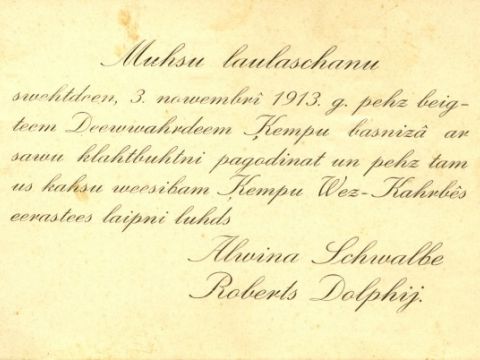 Muhsu laulaschanu
swehtdeen, 3. nowembrî 1913. g. pehz beig-
teem Deewwahrdeem Ķempu basnizâ ar
sawu klahtbuhtni pagodinat un pehz tam
us kahsu weesibam Ķempu Wez-Kahrbês
eerastees laipni luhds
Alwina Schwalbe
Roberts Dolphij.